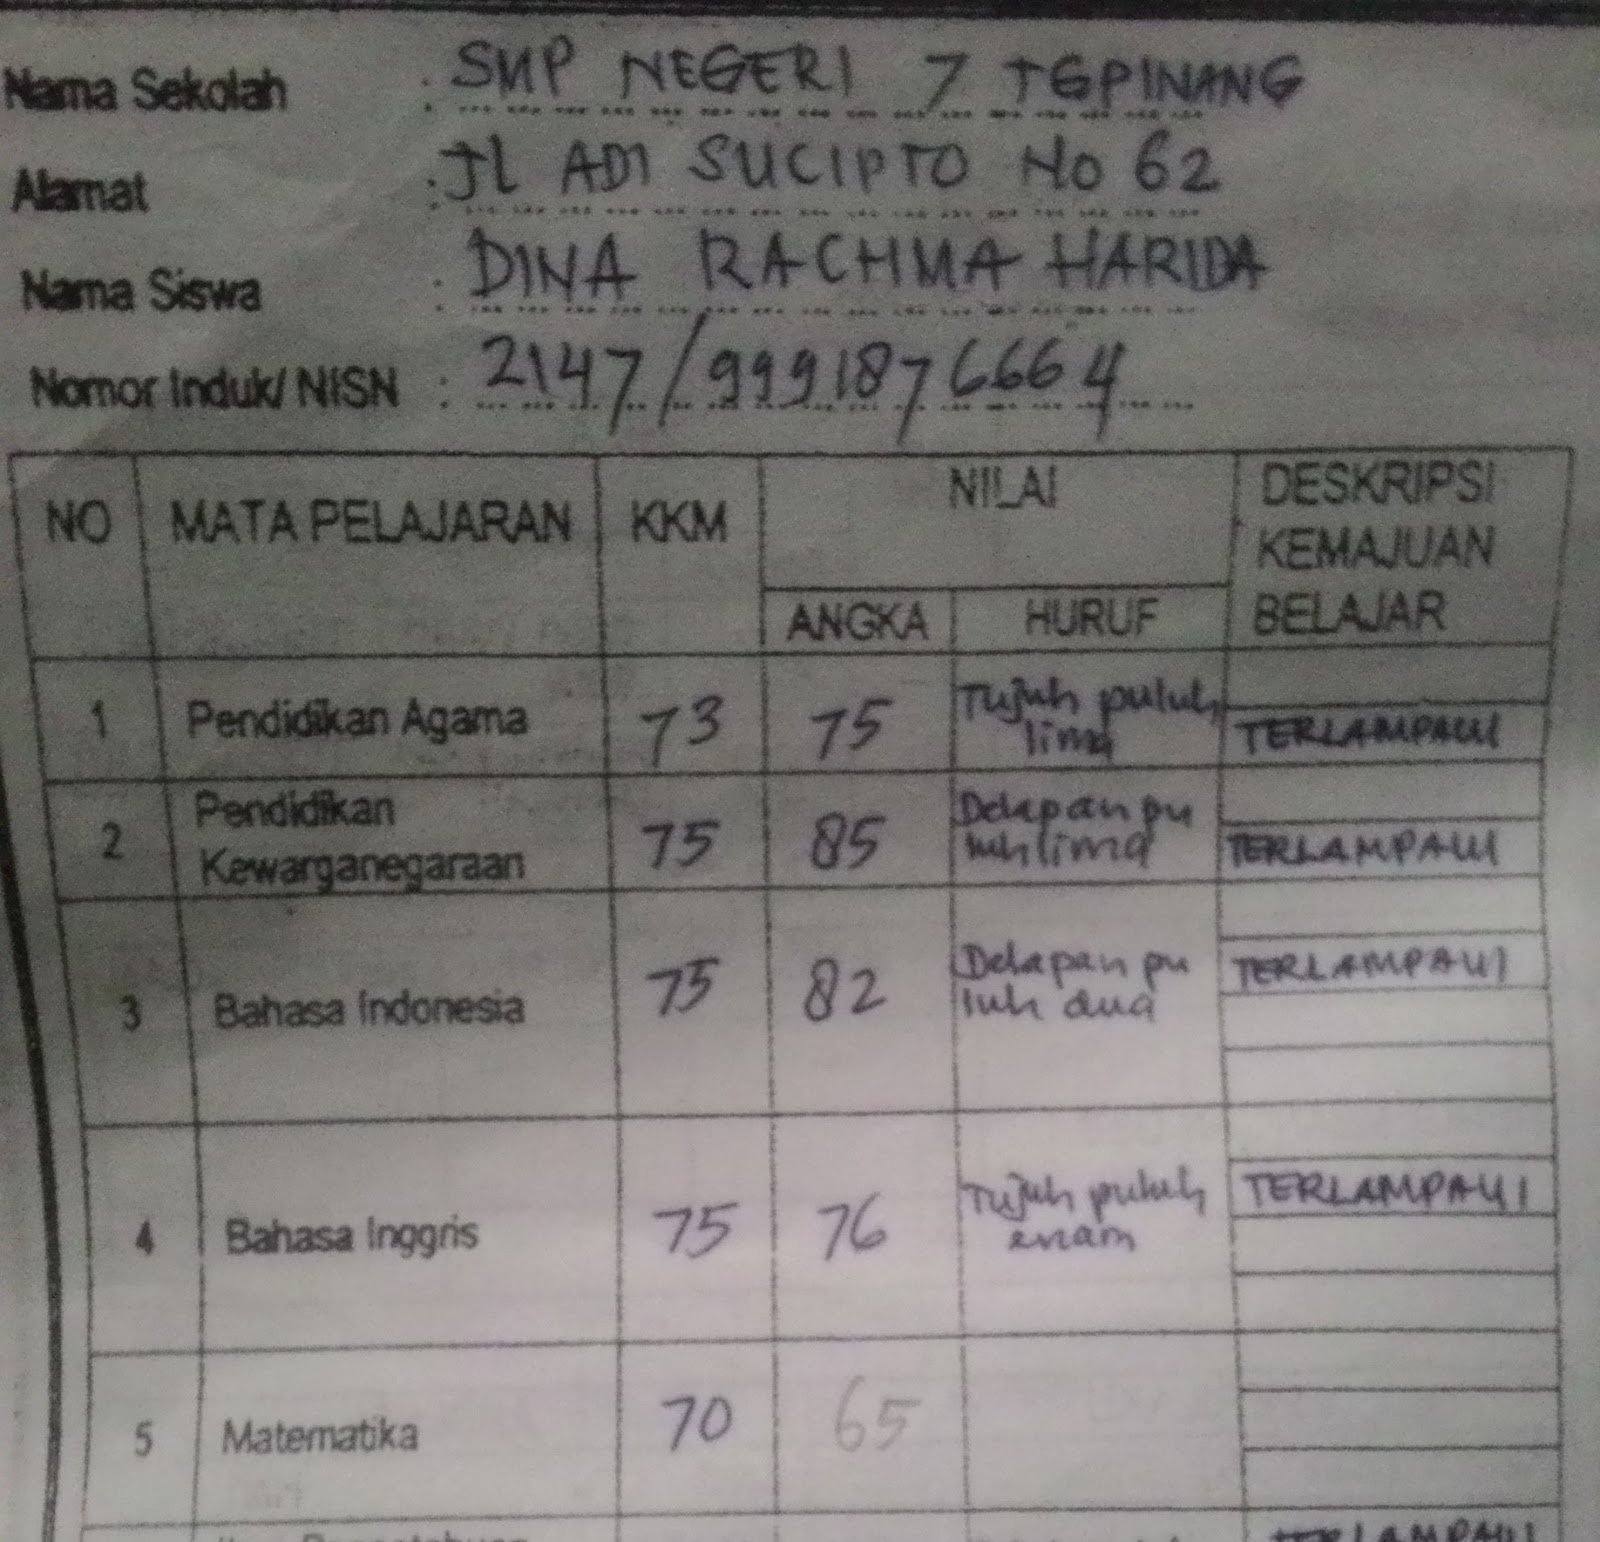 Nama Sekolah : SMP NEGERI 7 TGPINANG
Alamat : Jl ADI SUCIPTO No 62
Nama Siswa : DINA RACHMA HARIDA
Nomor Induk/ NISN : 2147/9991876664
NO MATA PELAJARAN KKM NILAI DESKRIPSI KEMAJUAN BELAJAR
ANGKA HURUF
1 Pendidikan Agama 73 75 Tujuh puluh lima TERLAMPAUI
2 Pendidikan Kewarganegaraan 75 85 Delapan pu luh lima TERLAMPAUI
3 Bahasa Indonesia 75 82 Delapan pu luh dua TERLAMPAUI
4 Bahasa Inggris 75 76 Tujuh puluh enam TERLAMPAUI
5 Matematika 70 65
TERLAMPAUI